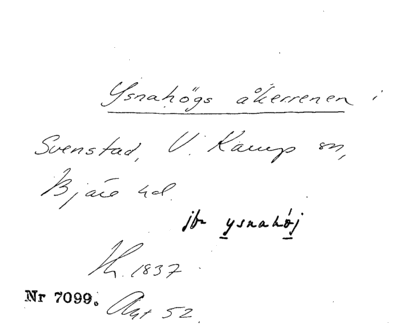 Ysnahögs åkerrenen i
Svenstad, V. Karup sn,
Bjäre hd.
jfr ysnahöj
Hh. 1837
Nr 7099.
Akt 52.